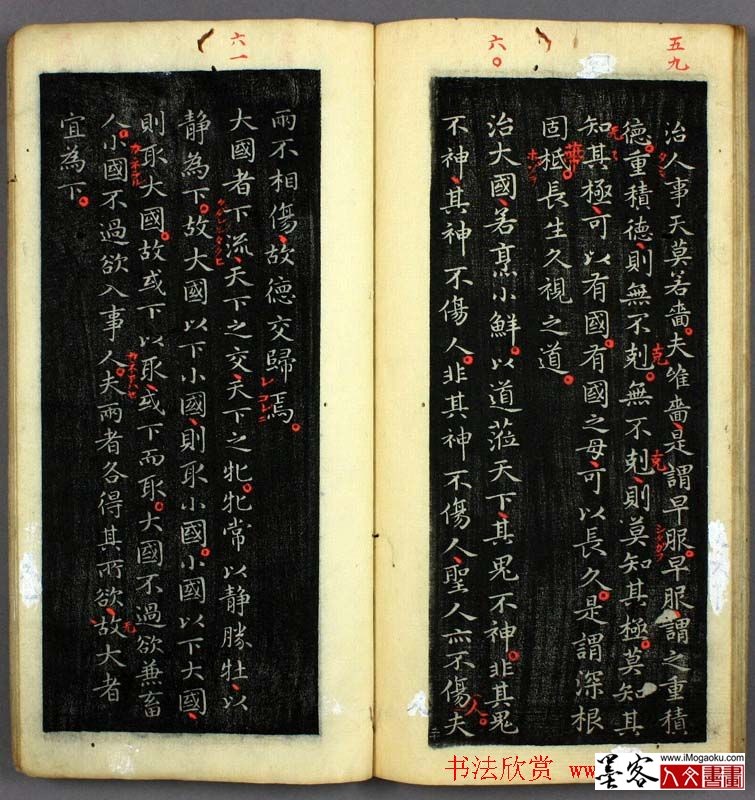 五九
治人事天莫若嗇夫唯嗇是謂早服早服謂之重積
德重積德則無不剋無不剋則莫知其極莫知其
知其極可以有國有國之母可以長久是謂深根
固柢長生久視之道
六〇
治大國若烹小鮮以道蒞天下其鬼不神非其鬼
不神其神不傷人非其神不傷人聖人亦不傷夫
人
兩不相傷故德交歸焉
六一
大國者下流天下之交天下之牝牝常以静勝牡以
静為下故大國以下小國則取小國小國以下大國
則取大國故或下以取或下而取大國不過欲兼畜
人小國不過欲入事人夫兩者各得其所欲故大者
宜為下
克
克
書法欣赏
www.iMogaoku.com
墨客
人文書畫